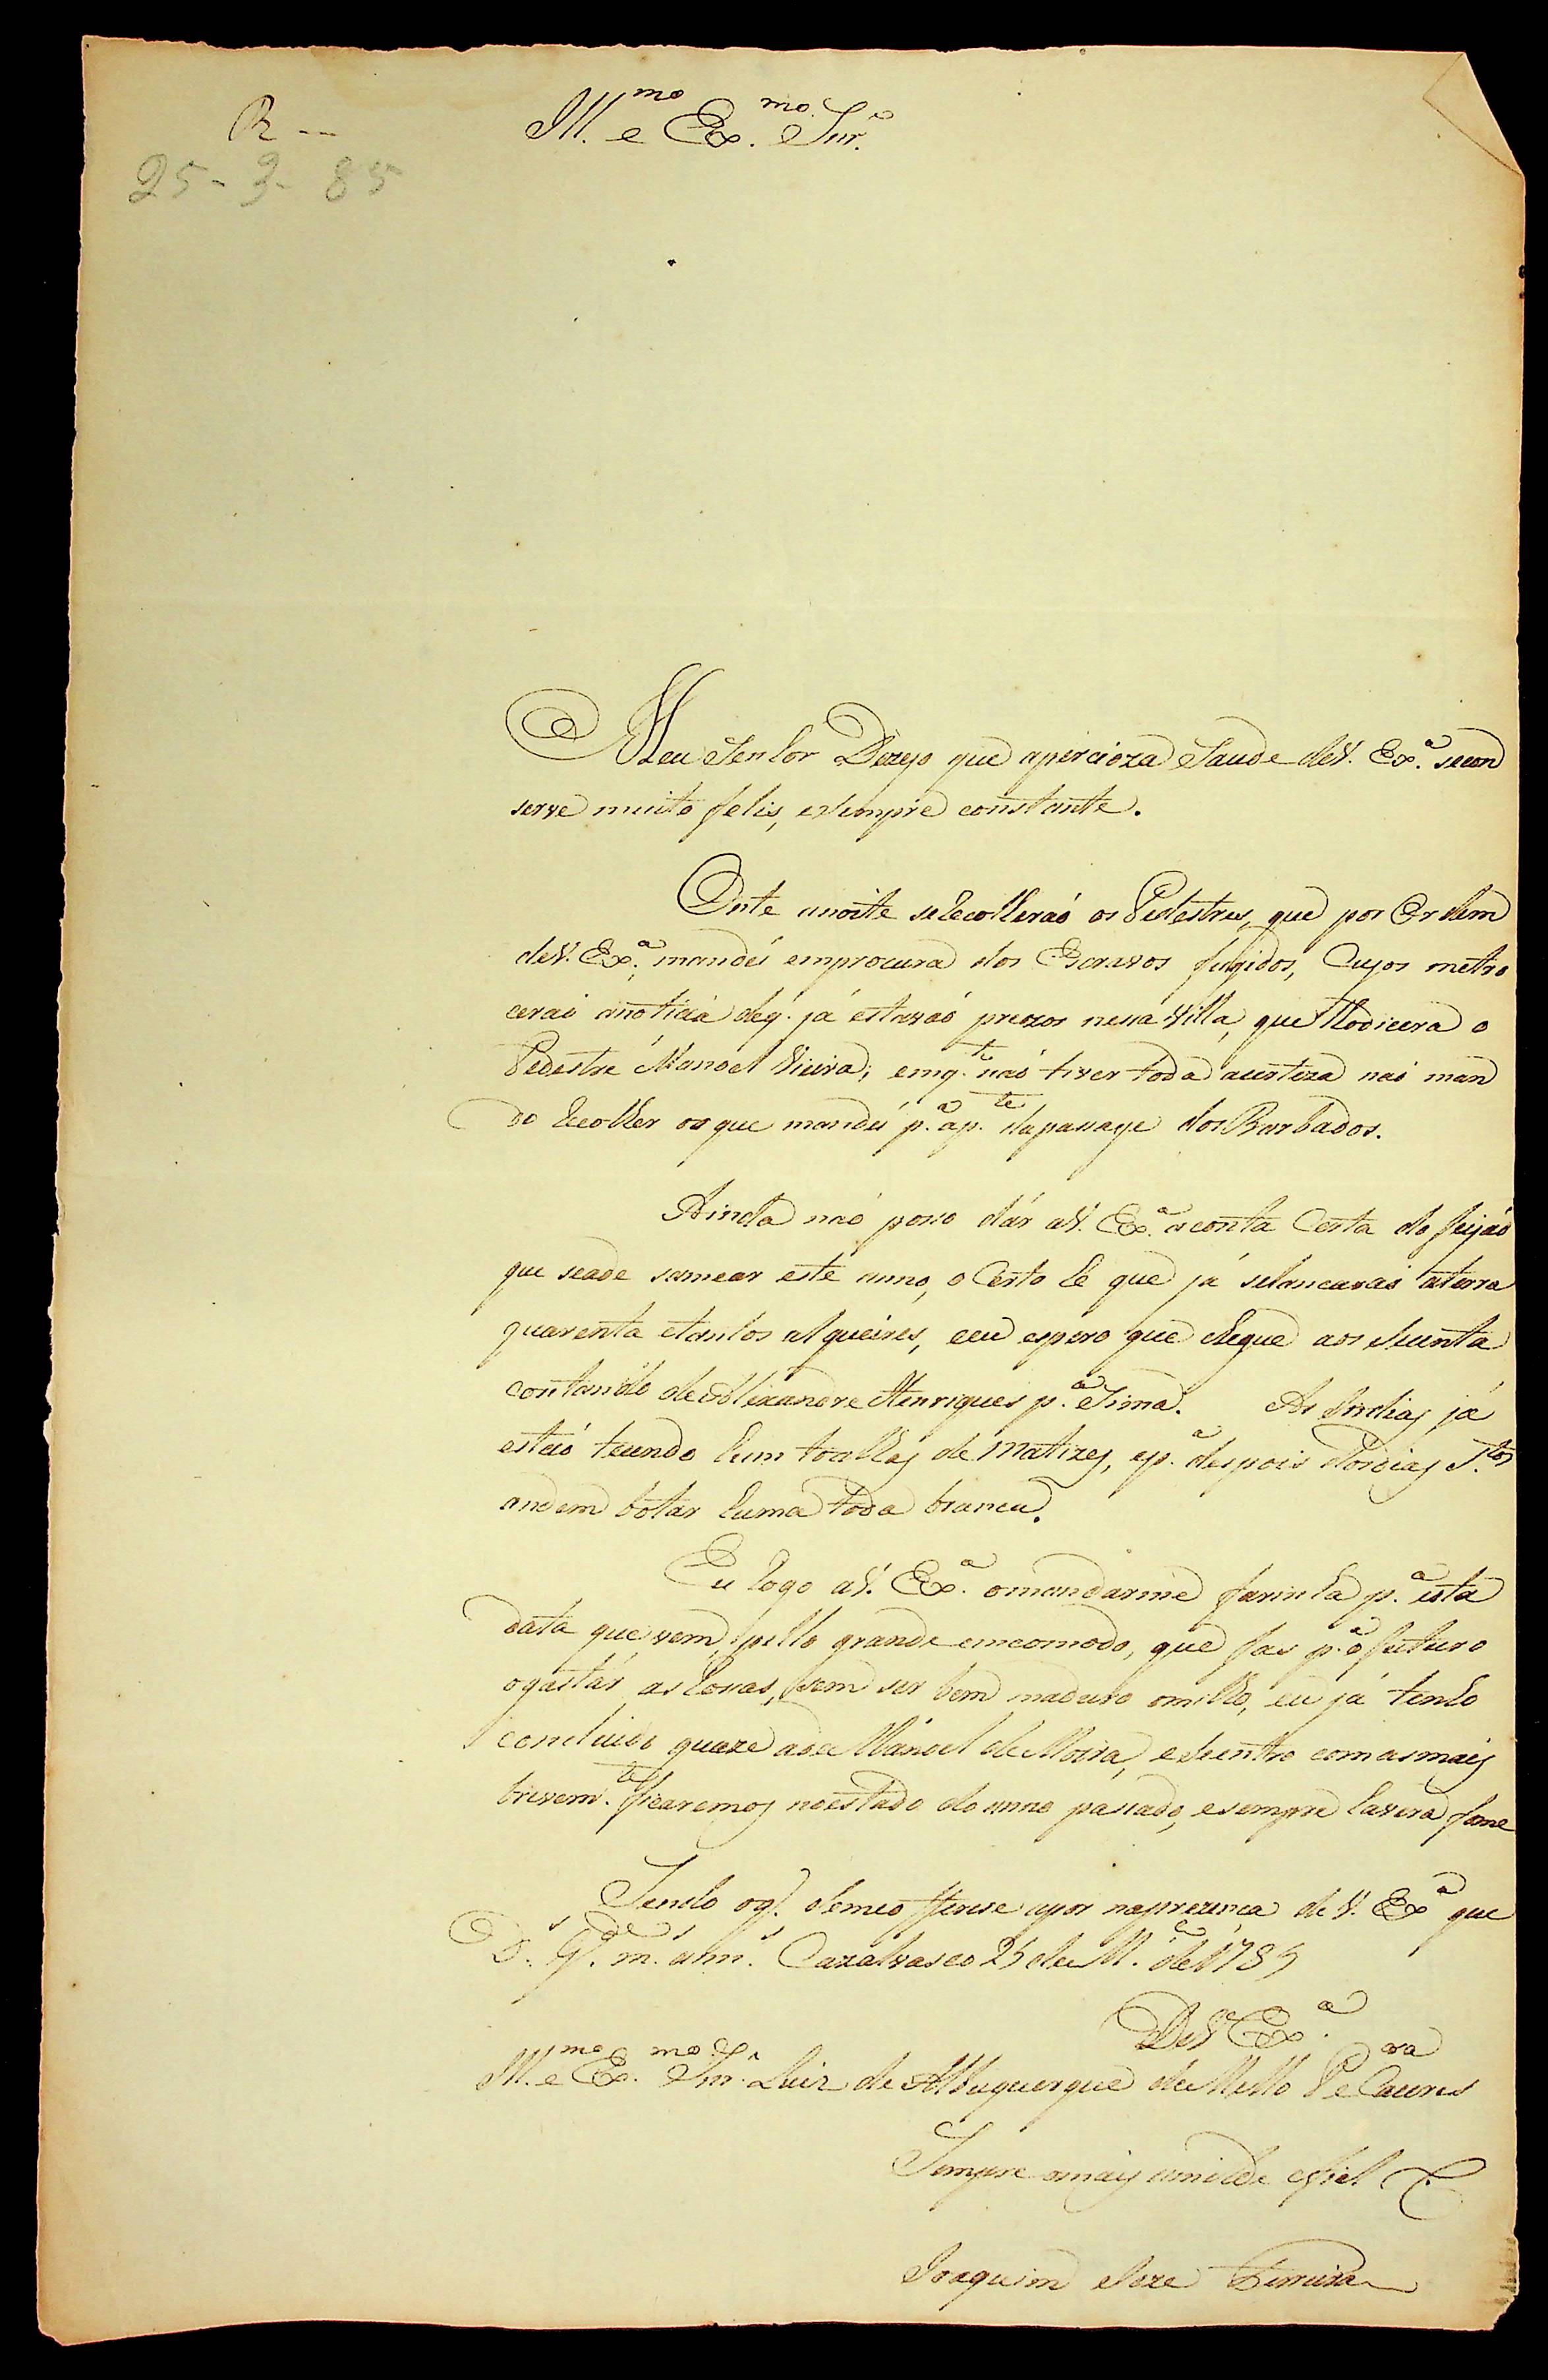 R --
25 - 3 - 85
Ill.mo e Ex.mo Snr.
Meu Senhor Dezejo que apercioza Saude deV. Ex.a secon
serve muito felis, esempre constante.
Onte anoite seRecolheraó os Pedestres, que por Ordem
deV. Ex.a, mandei emprocura dos Escravos fugidos, Cujos metro
ceraó anoticia deq. já estavaó prezos nessa Villa, que lhodicera o
Pedestre Manoel Vieira; emq.to naó tiver toda acerteza naó man
do Recolher os que mandei p.a ap.te dapassage dos Barbados.
Ainda naó poso dár aV. Ex.a aconta Certa do feijaó
que seade samear este anno, o Certo hé que já selancaraó aterra
quarenta etantos alqueires, eeu espero que chegue aos secenta
contando de Alixandre Henriques p.a Sima. As Indias já
estaó tecendo hum toalhas de Matizes, ep.a despois dos dias S.tos
andem botar huma toda branca.
Eu Rogo aV. Ex.a omandarme farinha p.a esta
data que vem, pello grande emcomodo, que fas p.a o futuro
ogastár as Rosas, sem ser bem maduro omilho, eu já tenho
concluido quaze adeManoel deMoira, edentro comasmais
brevem.te ficaremos noestado do anno pasiado, esempre havera fome
Sendo oq. demeo fferese apor naprezenca de V. Ex.a que
D.s G.de m.s ann.s Cazalvasco 25 de M.co de 1785
DeV. Ex.a
Ill.mo e Ex.mo Snr. Luiz de Albuquerque deMello P.ra e Caceres
Sempre omais umilde efiel C.
Joaquim Joze Ferreira